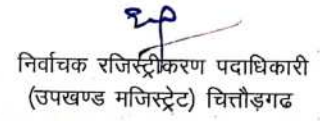 निर्वाचक रजिस्ट्रीकरण पदाधिकारी
(उपखण्ड मजिस्ट्रेट) चित्तौड़गढ